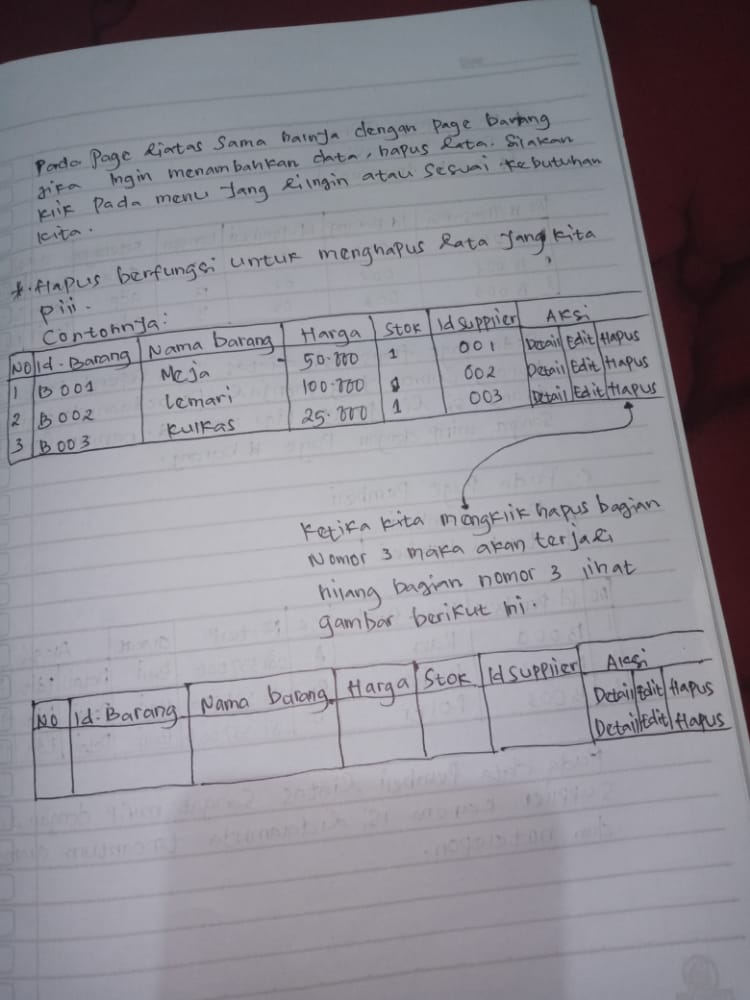 Pada Page diatas sama halnya dengan page barang
jika ingin menambahkan data, hapus data. Silakan
klik pada menu yang diingin atau sesuai kebutuhan
kita.
*. Hapus berfungsi untuk menghapus data yang kita
pili.
Contohnya:
No Id. Barang Nama barang Harga Stok Id supplier Aksi
1 B001 Meja 50.000 1 001 Detail Edit Hapus
2 B002 Lemari 100.000 1 002 Detail Edit Hapus
3 B003 Kulkas 25.000 1 003 Detail Edit Hapus
Ketika kita mengklik hapus bagian
Nomor 3 maka akan terjadi
hilang bagian nomor 3 lihat
gambar berikut ini.
No Id. Barang Nama barang Harga Stok Id supplier Aksi
Detail Edit Hapus
Detail Edit Hapus